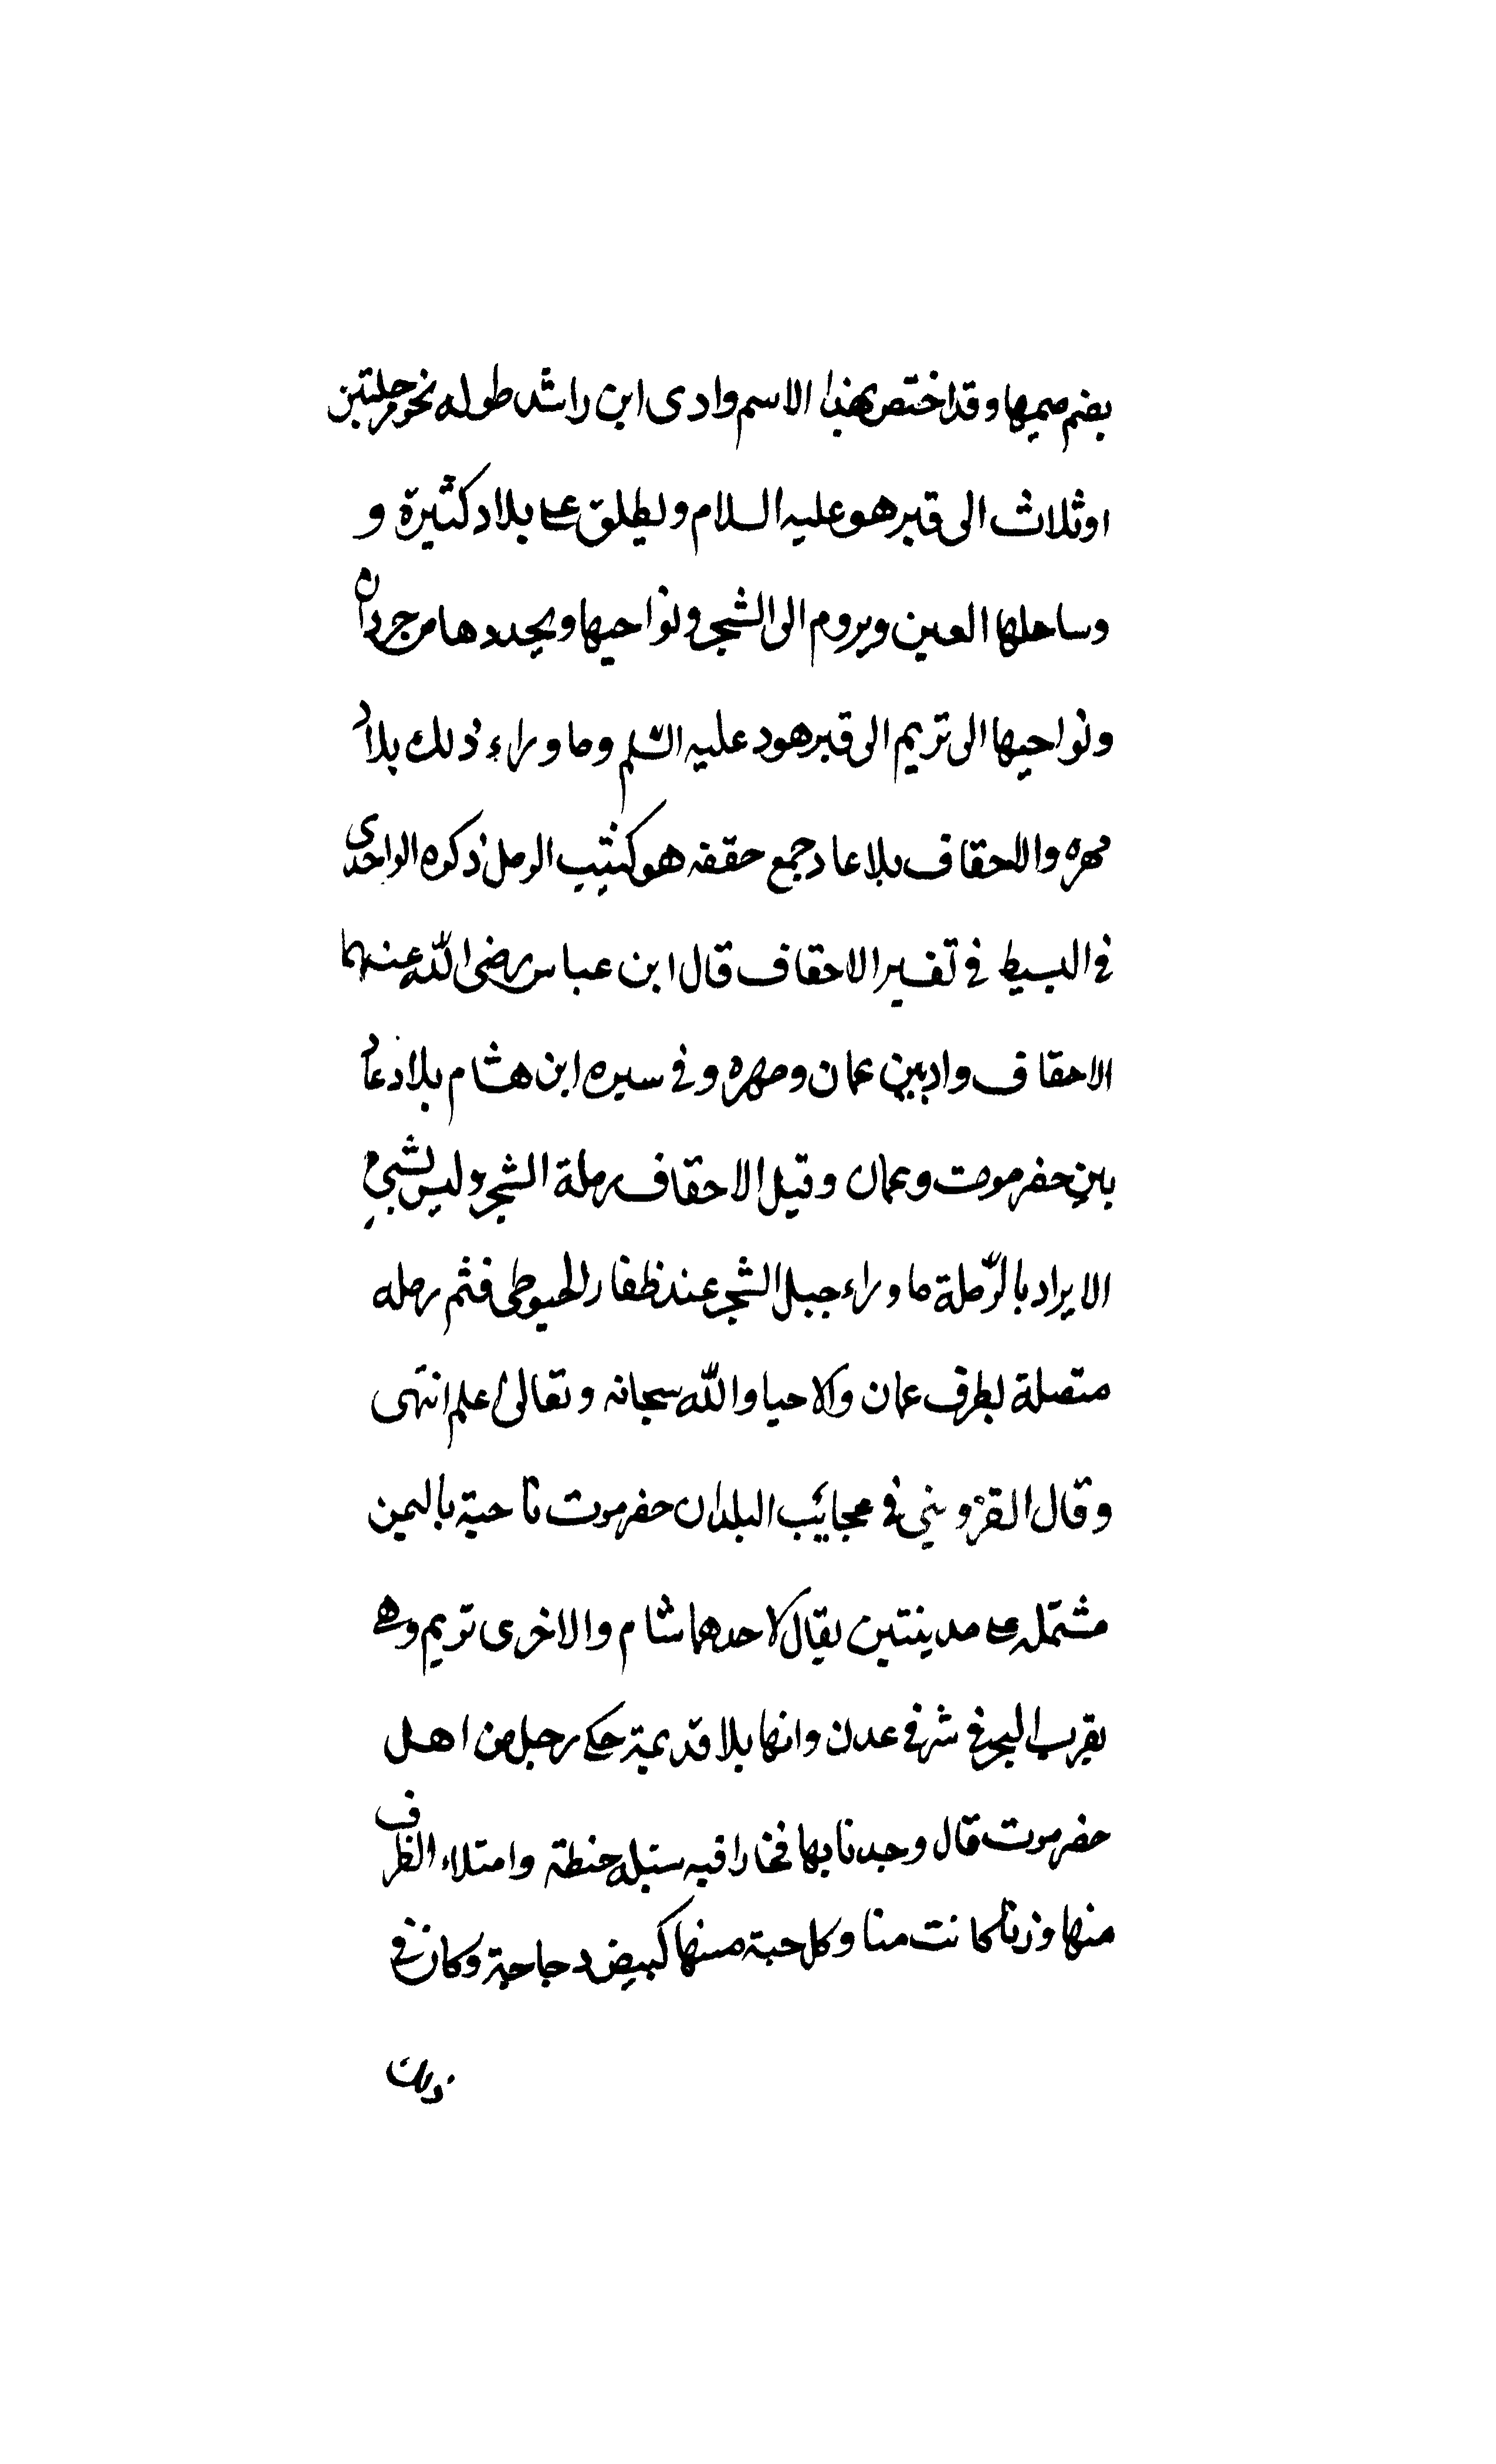 بضم ميمها وقد اختص بهذا الاسم وادى ابن راشد طوله نحو مرحلتين
اوثلاث الى قبر هو عليه السلام ويطلق على بلاد كثيرة و
وساحلها العين ويروم الى الشجر ونواحيها ويحددها من جردان
ونواحيها الى تريم الى قبر هود عليه السلم وما وراء ذلك بلاد
مهره والاحقاف بلاعاد جمع حقفه هو كثيب الرمل ذكره الواحدى
فى البسيط فى تفسير الاحقاف قال ابن عباس رضى الله عنهما
الاحقاف واد بين عمان ومهره وفى سيره ابن هشام بلاد عاد
بين حضرموت وعمان وقيل الاحقاف رملة الشجر وليس بشيء
الايراد بالرّملة ما وراء جبل الشجر عند ظفار الحبوطى فثم رمله
متصلة بطرف عمان والاحيا والله سبحانه وتعالى اعلم انتهى
وقال القزوينى فى عجائب البلدان حضرموت ناحية باليمن
مشتمله على مدينتين يقال لاحدهما شام والاخرى تريم وهى
بقرب البحر فى شرفى عدن وانها بلا قديمة حكى رجل من اهل
حضرموت قال وجدنا بها فخارا فيه سنبله حنطة وامتلاء الظرف
منها وزنا كانت منا وكل حبة منها كبيض دجاجة وكان فى